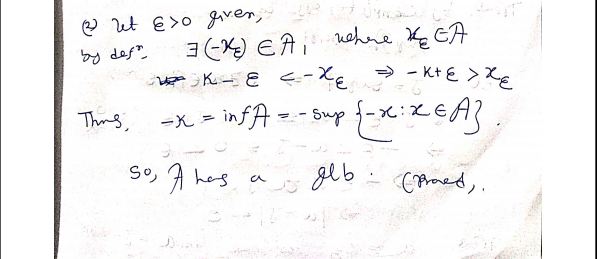 (2) let ε>0 given,
by defⁿ. ∃ (-x_ε) ∈ A, where x_ε ∈ A
K - ε < -x_ε ⇒ -K+ε > x_ε
Thus, -K = inf A = - sup {-x : x ∈ A}.
So, A has a glb. (Proved).